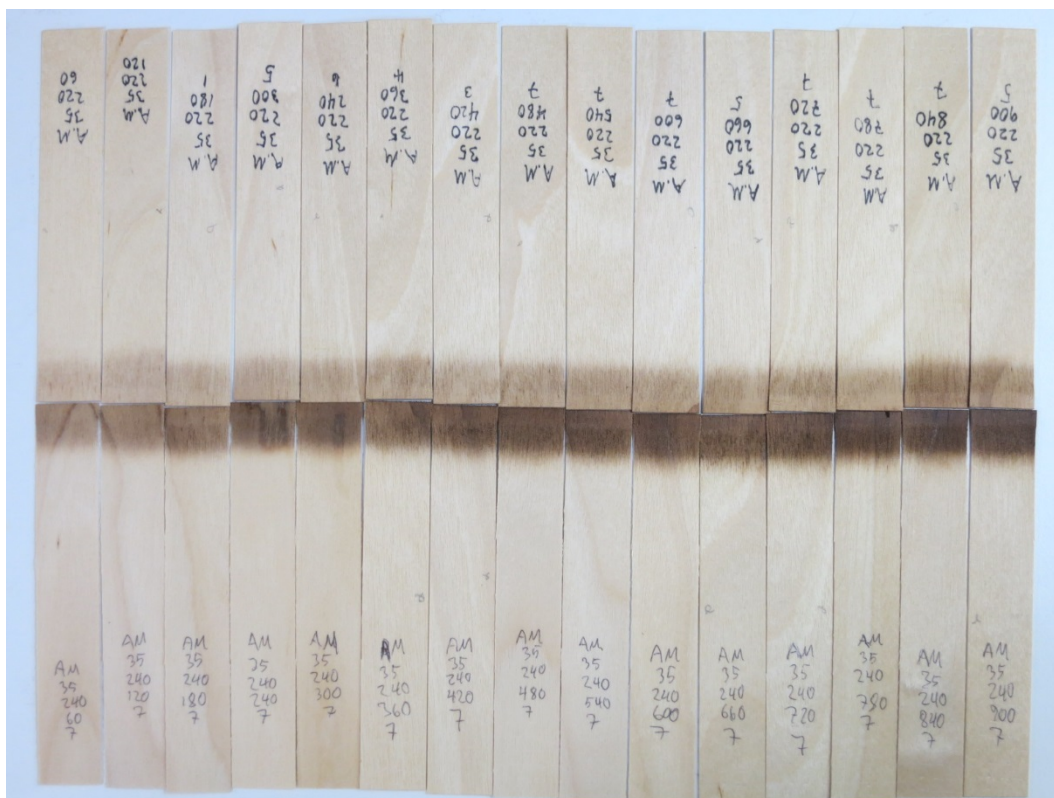 A.M
35
220
60
A.M
35
220
120
A.M
35
220
180
1
A.M
35
220
300
5
A.M
35
220
240
6
A.M
35
220
360
4
A.M
35
220
420
3
A.M
35
220
480
7
A.M
35
220
540
7
A.M
35
220
600
7
A.M
35
220
660
5
A.M
35
220
720
7
A.M
35
220
780
7
A.M
35
220
840
7
A.M
35
220
900
5
AM
35
240
60
7
AM
35
240
120
7
AM
35
240
180
7
AM
25
240
240
7
AM
35
240
300
7
AM
35
240
360
7
AM
35
240
420
7
AM
35
240
480
7
AM
35
240
540
7
AM
35
240
600
7
AM
35
240
660
7
AM
35
240
720
7
AM
35
240
780
7
AM
35
240
840
7
AM
35
240
900
7